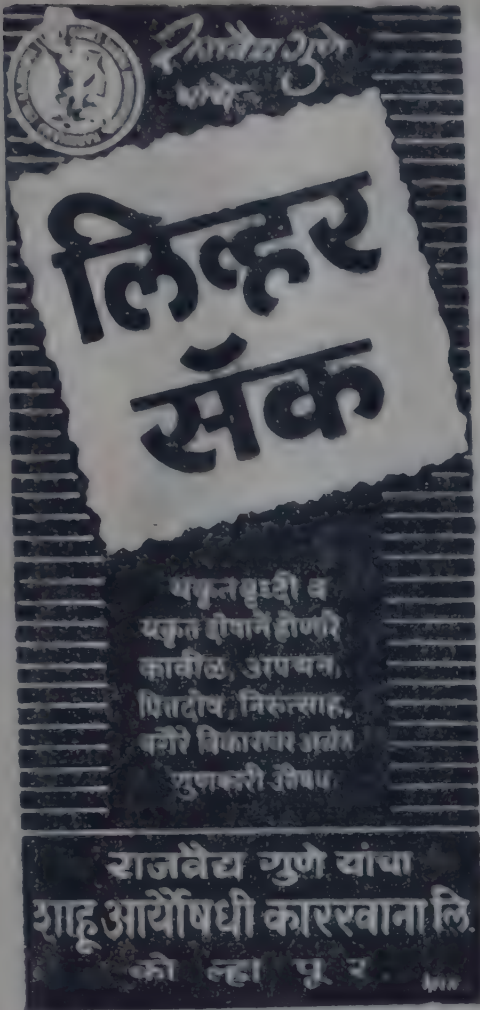 राजवैद्य गुणे
यांचे
लिव्हर
सॅक
यकृतवृध्दी व
यकृत दोषाने होणारे
कावीळ, अपचन,
पित्तदोष, निरुत्साह,
वगैरे विकारावर अत्यंत
गुणकारी औषध
राजवैद्य गुणे यांचा
शाहू आर्यौषधी कारखाना लि.
को ल्हा पू र